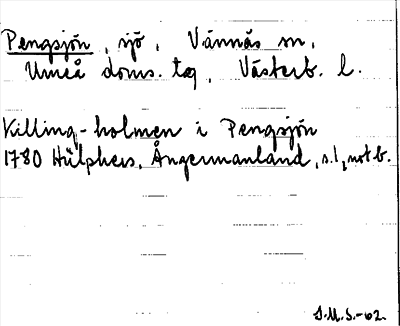 Pengsjön, sjö, Vännäs sn,
Umeå doms. tg, Västerb. l.
Killing-holmen i Pengsjön
1780 Hülphers, Ångermanland, s. 1, not b.
S.M.S.-62.